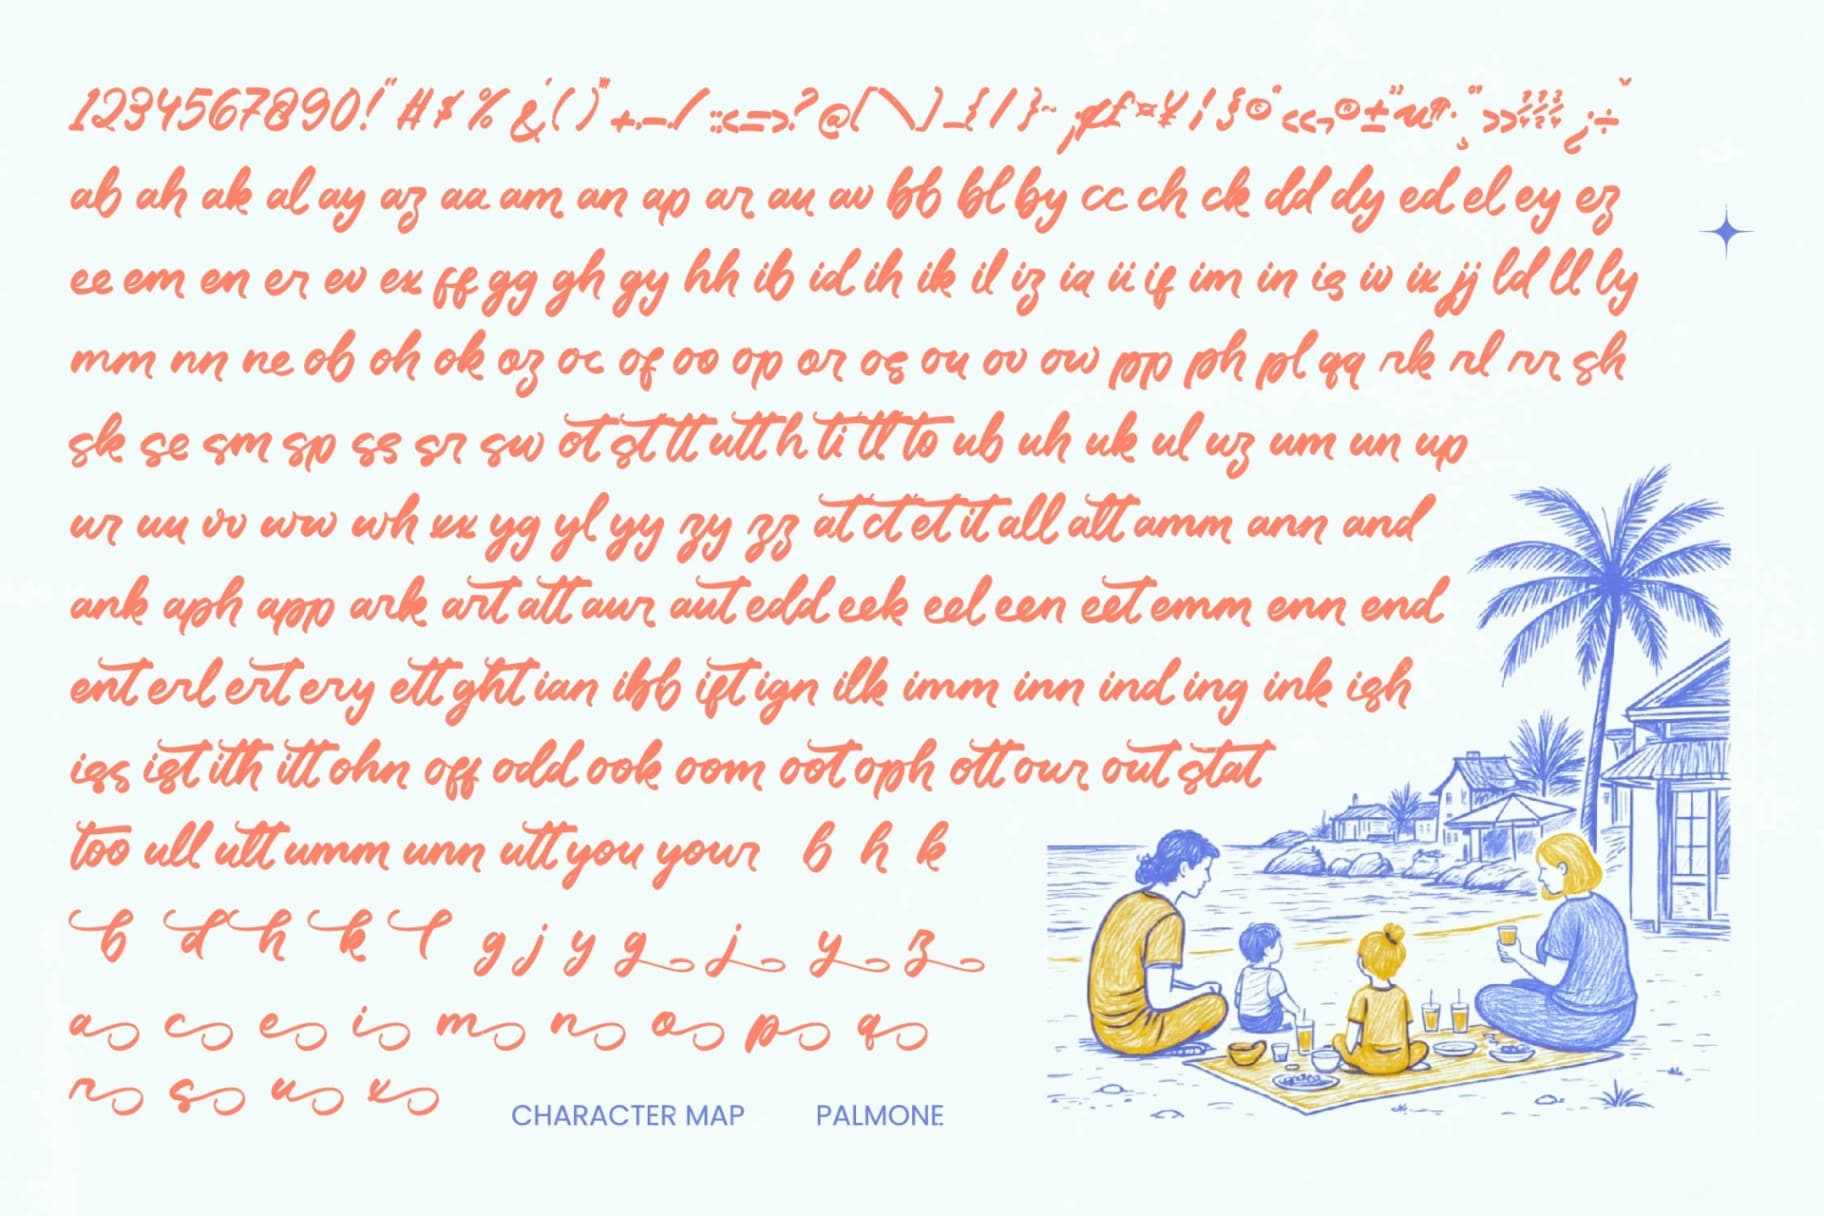 1234567890!" # $ % & ' ( ) * + , - . / : ; < = > ? @ [ \ ] _ { | } ~ ¡ ¢ £ ¤ ¥ ¦ § © ¨ « ¬ ® ± ² ³ µ ¶ · ¸ ¹ º » ¼ ½ ¾ ¿ ÷ ˇ
ab ah ak al ay az aa am an ap ar au av bb bl by cc ch ck dd dy ed el ey ez
ee em en er ev ex ff gg gh gy hh ib id ih ik il iz ia ii if im in is iv ix jj ld ll ly
mm nn ne ob oh ok oz oc of oo op or os ou ov ow pp ph pl qq rk rl rr sh
sk se sm sp ss sr sw ot st tt utt h ti tl to ub uh uk ul uz um un up
ur uu vv ww wh xx yg yl yy zy zz at ct et it all alt amm ann and
ank aph app ark art att aur aut edd eek eel een eet emm enn end
ent erl ert ery ett ght ian ibb ift ign ilk imm inn ind ing ink ish
iss ist ith itt ohn off odd ook oom oot oph ott our out stat
too ull ult umm unn utt you your b h k
b d h k l g j y g j y z
a c e i m n o p q
r s u x
CHARACTER MAP PALMONE